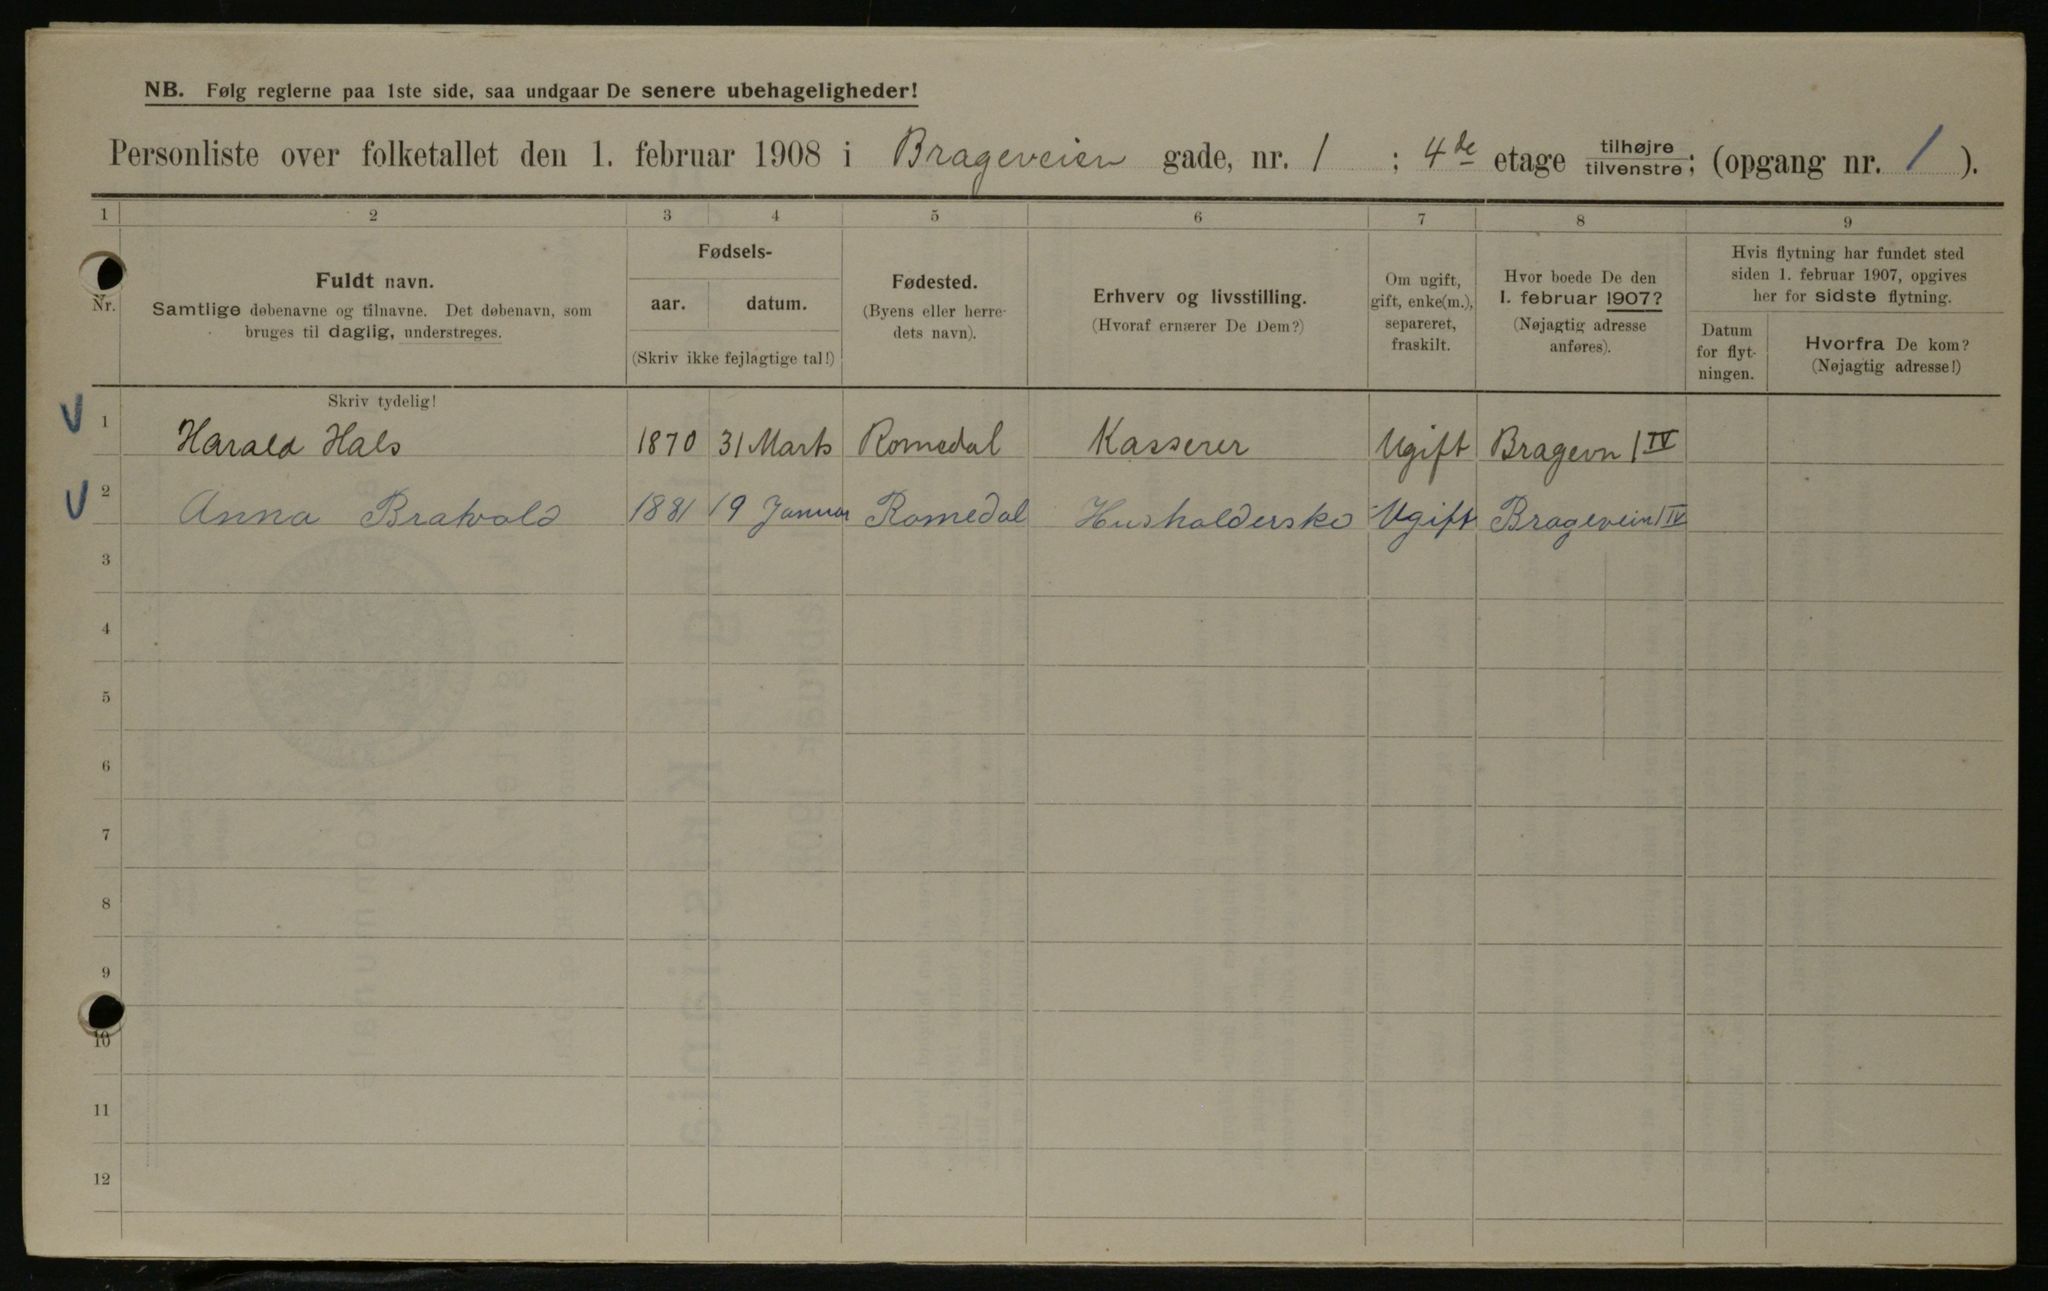 NB. Følg reglerne paa 1ste side, saa undgaar De senere ubehageligheder!
Personliste over folketallet den 1. februar 1908 i Brageveien gade, nr. 1 ; 4de etage tilhøjre tilvenstre; (opgang nr. 1 ).
1 2 3 4 5 6 7 8 9
Nr.
Fuldt navn.
Samtlige døbenavne og tilnavne. Det døbenavn, som
bruges til daglig, understreges.
Fødsels-
aar. datum.
(Skriv ikke fejlagtige tal!)
Fødested.
(Byens eller herre-
dets navn).
Erhverv og livsstilling.
(Hvoraf ernærer De Dem?)
Om ugift,
gift, enke(m.),
separeret,
fraskilt.
Hvor boede De den
1. februar 1907?
(Nøjagtig adresse
anføres).
Hvis flytning har fundet sted
siden 1. februar 1907, opgives
her for sidste flytning.
Datum
for flyt-
ningen.
Hvorfra De kom?
(Nøjagtig adresse!)
Skriv tydelig!
1 Harald Hals 1870 31 Marts Romedal Kasserer Ugift Bragevn 1 IV
2 Anna Bratvold 1881 19 Januar Romedal Husholderske Ugift Brageveien 1 IV
3
4
5
6
7
8
9
10
11
12